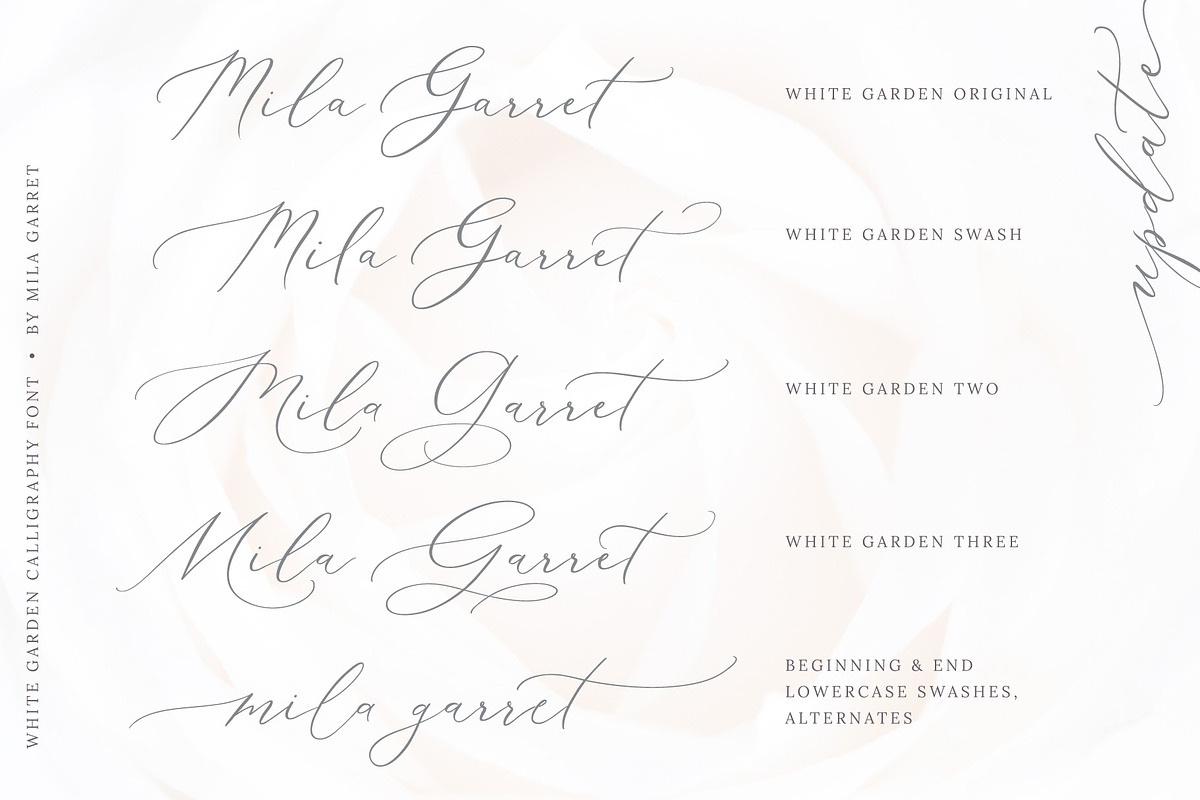 Mila Garret
WHITE GARDEN ORIGINAL
Mila Garret
WHITE GARDEN SWASH
Mila Garret
WHITE GARDEN TWO
Mila Garret
WHITE GARDEN THREE
mila garret
BEGINNING & END
LOWERCASE SWASHES,
ALTERNATES
WHITE GARDEN CALLIGRAPHY FONT • BY MILA GARRET
update